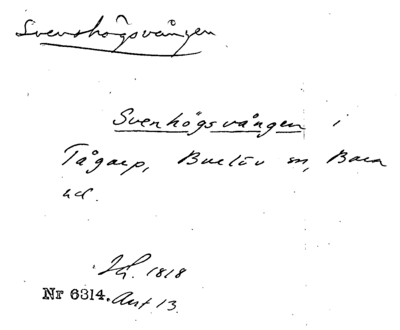 Svenshögsvången
Svenhögsvången i
Tågarp, Burlöv sn, Bara
hd.
LG. 1818
Nr 6314. Akt 13.